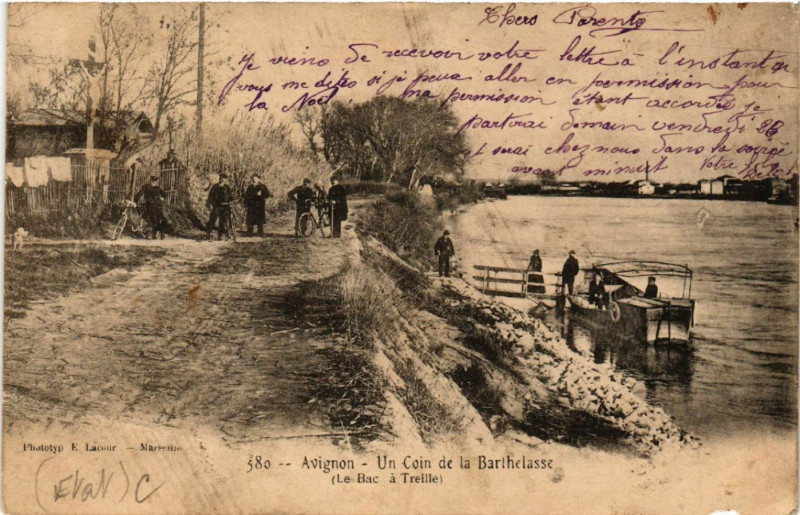 Chers Parents
Je viens de recevoir votre lettre à l'instant ou
vous me dites si je peux aller en permission pour
la Noël ma permission étant accordée je
partirai demain vendredi
et serai chez nous dans la soirée
avant minuit Votre
Phototyp E. Lacour — Marseille
580 -- Avignon - Un Coin de la Barthelasse
(Le Bac à Treille)